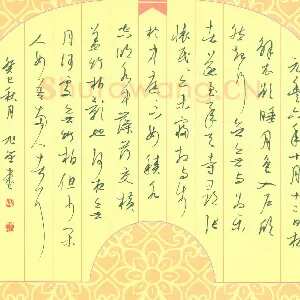 元丰六年十月十二日夜
解衣欲睡月色入户欣
然起行念无与为乐
者遂至承天寺寻张
怀民亦未寝相与步
于中庭下如积水
空明水中藻荇交横
盖竹柏影也何夜无
月何处无竹柏但少闲
人如吾两人者耳
癸巳秋月
Shufawang.CN